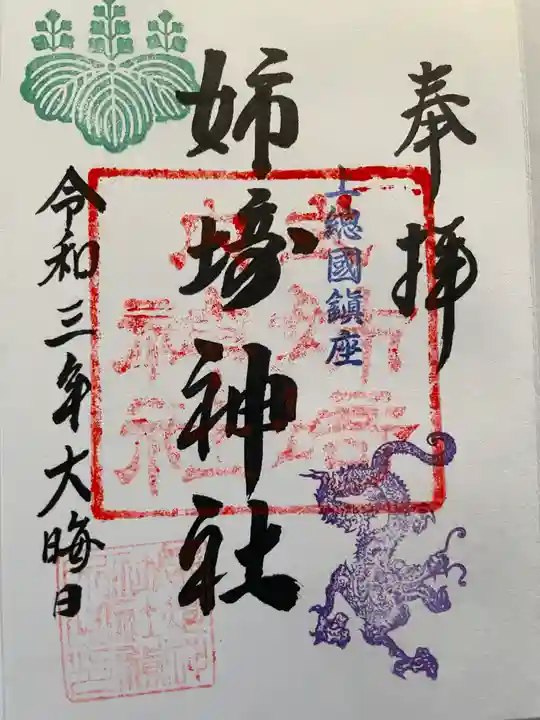 奉拝
上總國鎮座
姉埼神社
令和三年大晦日